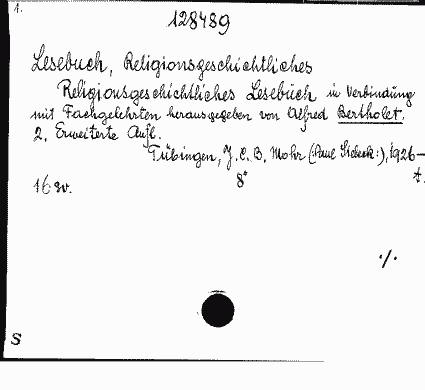 1.
128489
Lesebuch, Religionsgeschichtliches
Religionsgeschichtliches Lesebuch in Verbindung
mit Fachgelehrten herausgegeben von Alfred Bertholet.
2. Erweiterte Aufl.
Tübingen, J. C. B. Mohr (:Paul Siebeck:), 1926—
8° t.
16 sv.
·/·
S